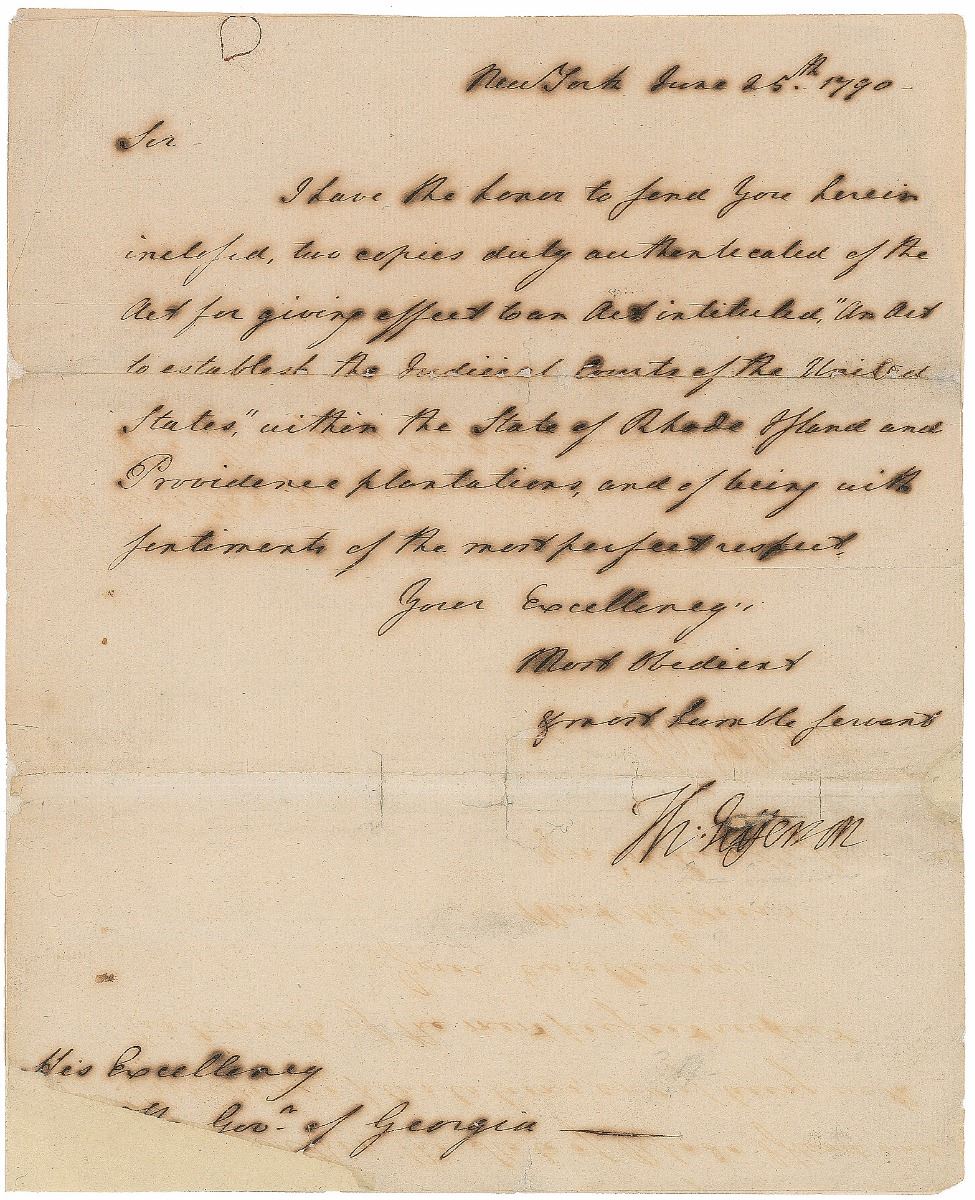 New York June 25.th 1790
Sir
I have the honor to send You herein
inclosed, two copies duly authenticated of the
Act for giving effect to an Act intituled, "An Act
to establish the Judicial Courts of the United
States," within the State of Rhode Island and
Providence plantations, and of being with
sentiments of the most perfect respect.
Your Excellency's
Most Obedient
& most humble servant
Th: Jefferson
His Excellency
Gov.r of Georgia